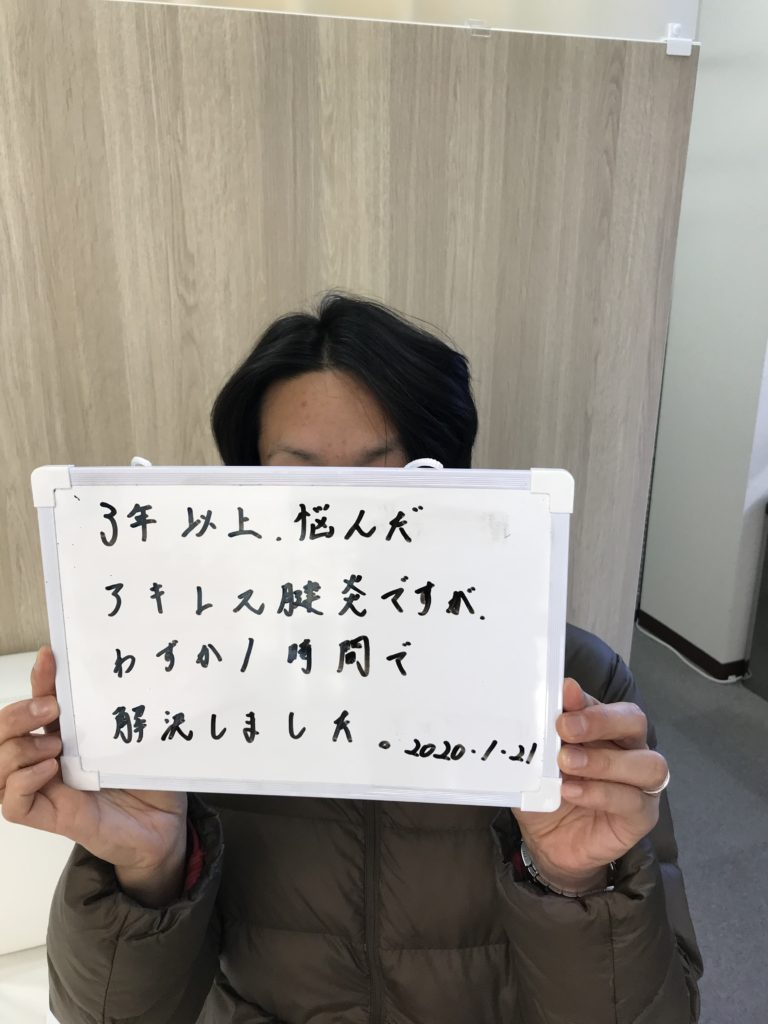 3年以上、悩んだ
アキレス腱炎ですが、
わずか1時間で
解決しました。2020.1.21